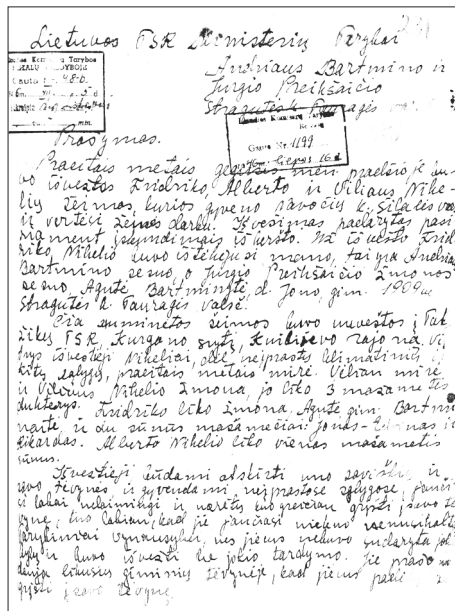 Lietuvos TSR Ministerių Tarybai
Andriaus Bartmino ir
Jurgio Preikšaičio
Stragutės k. Tauragės
Gauta Nr. 1199
liepos 16 d.
Prašymas.
Praeitais metais gegužės mėn. praeslioje bu-
vo išvestos Endriko, Alberto ir Viliaus Nike-
lių šeimos, kurios gyveno k. Šilalės
ir vertėsi žemės darbu. Išvešimas padarytas pasi
remiant įskundimais iš keršto. Už išvesto End-
riko Nikelio buvo ištekėjusi mano, tai yra Andriaus
Bartmino sesuo, o Jurgio Preikšaičio žmonos
sesuo, Agutė Bartmintė, d. Jono, gim. 1909 m.
Stragutės k. Tauragės valsč.
Čia suminėtos šeimos buvo nuvežtos į Tad-
žikų TSR, Kurgano sritį, rajoną, Vi-
išvestieji Nikeliai, dėl neįprastų klimatinių ir
kitų sąlygų, praeitais metais mirė. Viliau mirė
ir Viliaus Nikelio žmona, jo liko 3 mažametės
dukterys. Endriko liko žmona, Agutė gim. Bartmi
naitė, ir du sūnus mažamečiai: Jonas- ir
Rikardas. Alberto Nikelio liko vienas mažametis
sūnus.
Išvestieji būdami atskirti nuo savišk ir
savo tėvynės, ir gyvendami neįprastose sąlygose, jaučiasi
labai nelaimingi ir norėtų kuo greičiau grįšti į savo tė
vynę, tuo labiau, kad jie jaučiasi nieku nenusikaltę
tarybinei vyriausybei, nes jiems nebuvo sudaryta jokių
bylų ir buvo išvesti be jokio tardymo. Jie prašo
likusius gimines tėvynėje, kad jiems padėtų
grįšti į savo tėvynę.